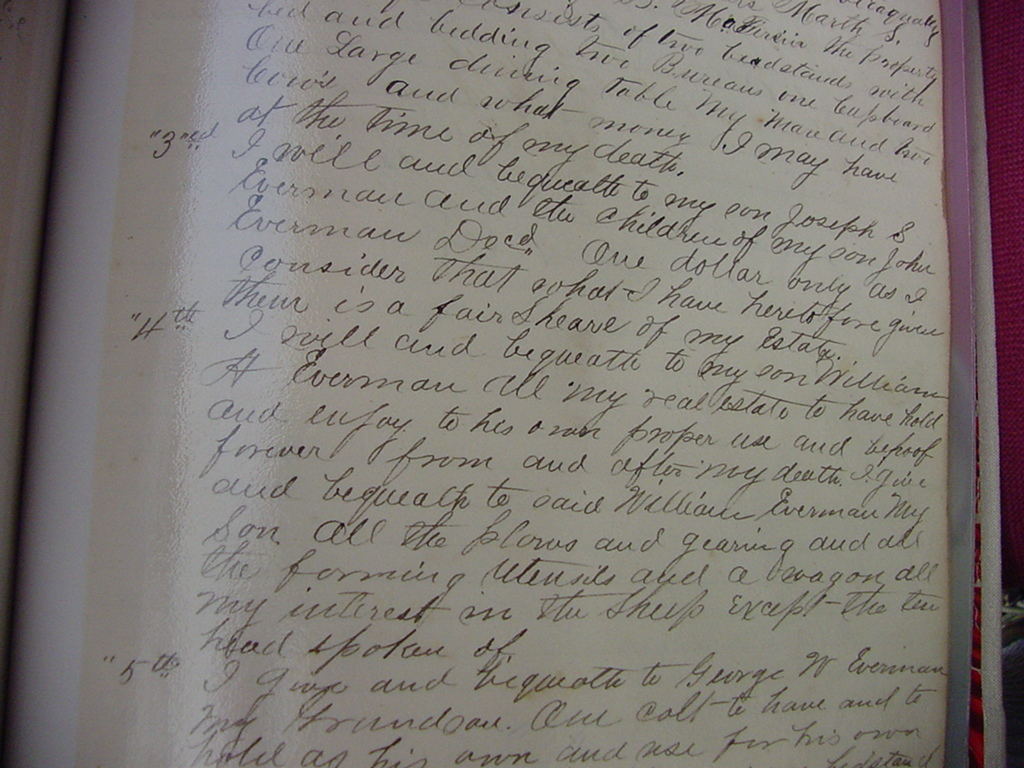 Marth S.
consist of two beadstands with
bed and bedding two Bureaus one Cupboard
One Large dining Table My Mare and two
Cows and what money I may have
at the time of my death.
"3red I will and bequeath to my son Joseph S
Everman and the children of my son John
Everman Decd One dollar only as I
consider that what I have heretofore given
them is a fair Sheare of my Estate.
"4th I will and bequeath to my son William
A Everman all my real estate to have hold
and enjoy to his own proper use and behoof
forever from and after my death I give
and bequeath to said William Everman My
Son all the plows and gearing and all
the forming utensils and a wagon all
my interest in the Sheep Except the ten
head spoken of
"5th I give and bequeath to George W Everman
my Grundson. One colt to have and to
hold as his own and use for his own
bedstand